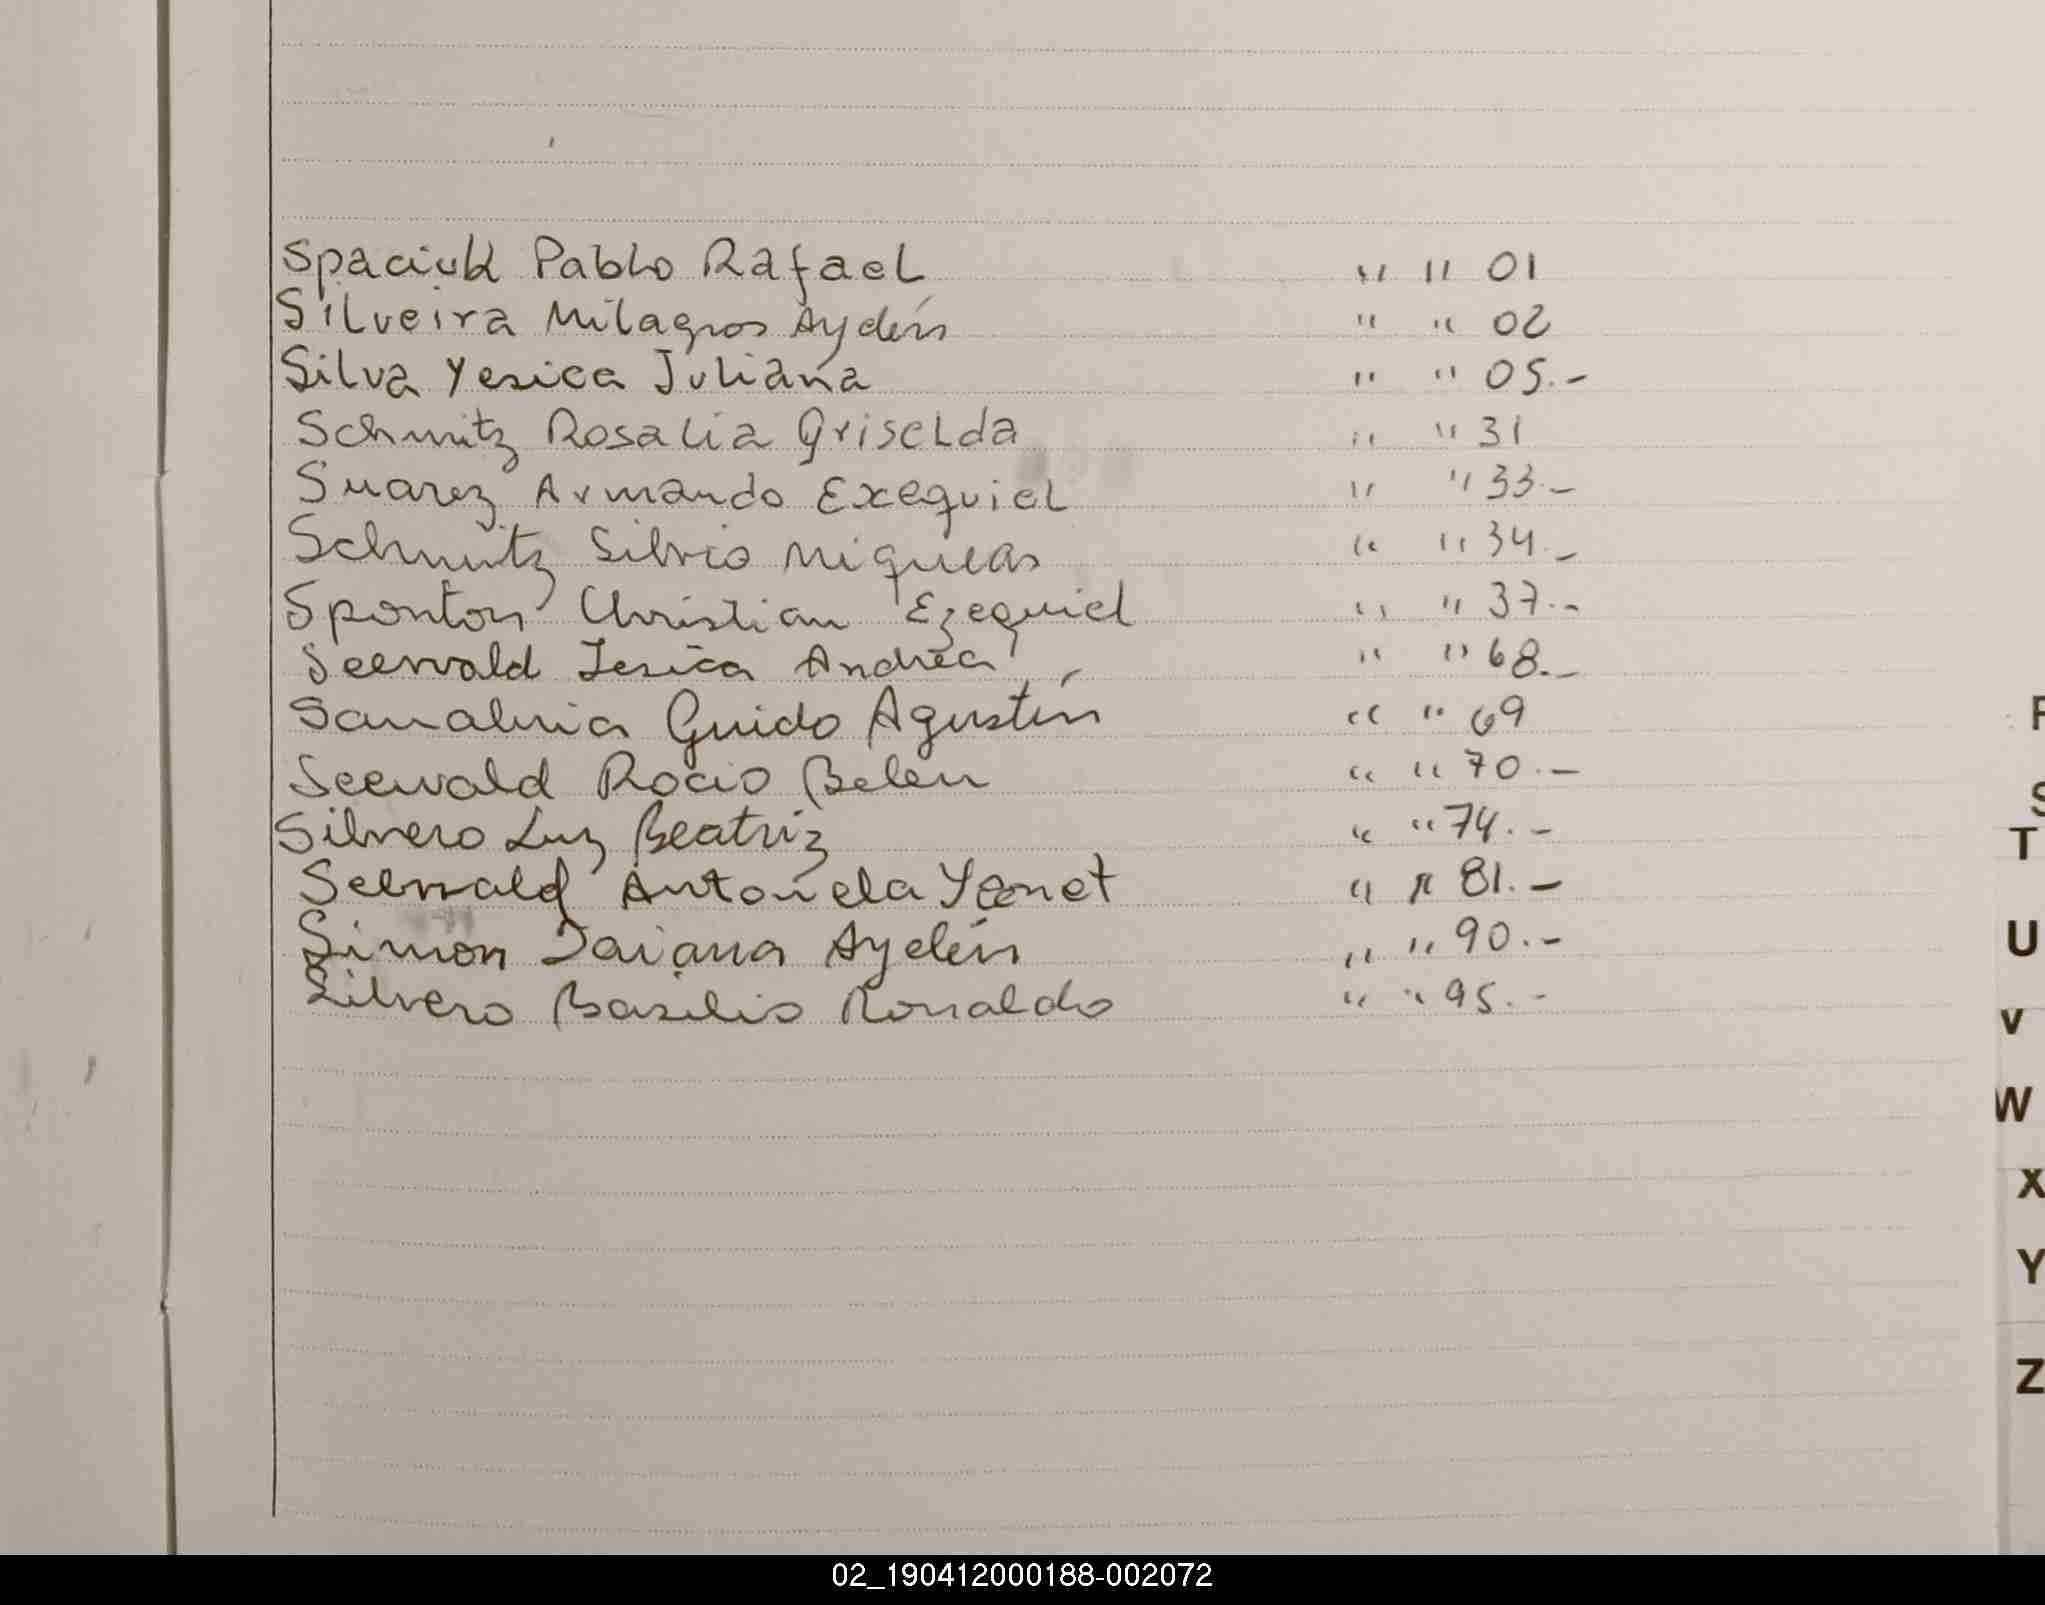 Spaciuk Pablo Rafael " " 01
Silveira Milagros Aydén " " 02
Silva Yesica Juliana " " 05.-
Schmitz Rosalia Griselda " " 31
Suarez Armando Exequiel " " 33.-
Schmitz Silvio Miqueas " " 34.-
Sponton Christian Ezequiel " " 37.-
Seewald Jesica Andrea " " 68.-
Sanabria Guido Agustín " " 69
Seewald Rocio Belen " " 70.-
Silvero Luz Beatriz " " 74.-
Seewald Antonela Yanet " " 81.-
Simon Taiana Ayelén " " 90.-
Silvero Basilio Ronaldo " " 95.-
T
U
V
W
X
Y
Z
02_190412000188-002072